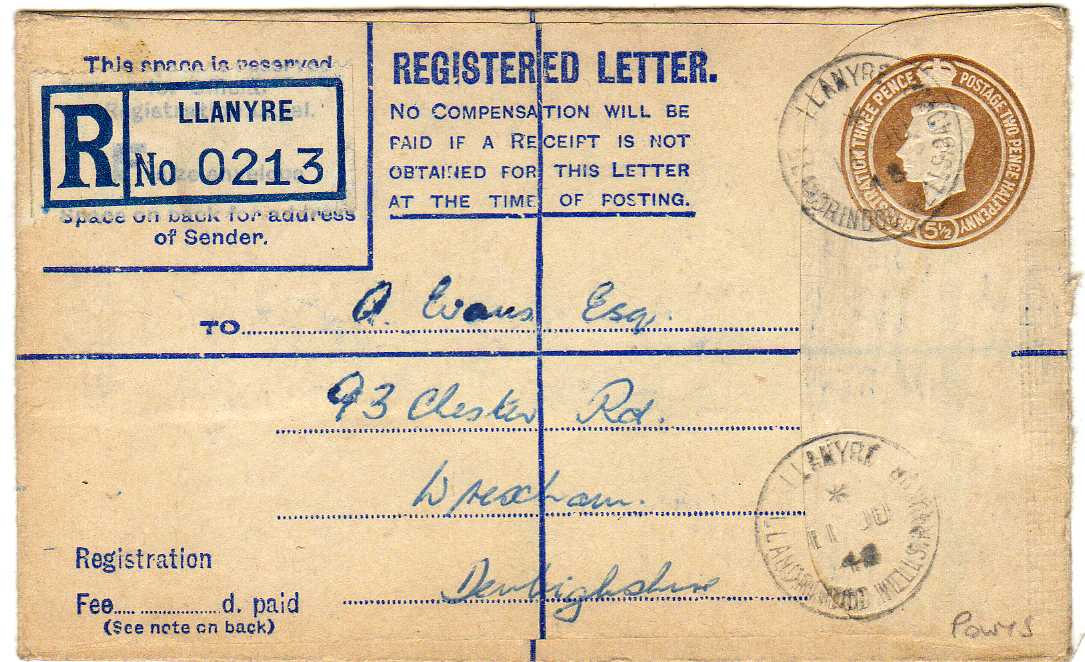 This space is reserved
R
LLANYRE
No 0213
Space on back for address
of Sender.
REGISTERED LETTER.
NO COMPENSATION WILL BE
PAID IF A RECEIPT IS NOT
OBTAINED FOR THIS LETTER
AT THE TIME OF POSTING.
REGISTRATION THREE PENCE
POSTAGE TWO PENCE HALFPENNY
5½
LLANYRE
TO A. Evans Esq.
93 Chester Rd.
Wrexham.
Denbighshire
LLANYRE
LLANDRINDOD WELLS, RAD
*
11
48
Registration
Fee.... ....................d. paid
(See note on back)
Powys